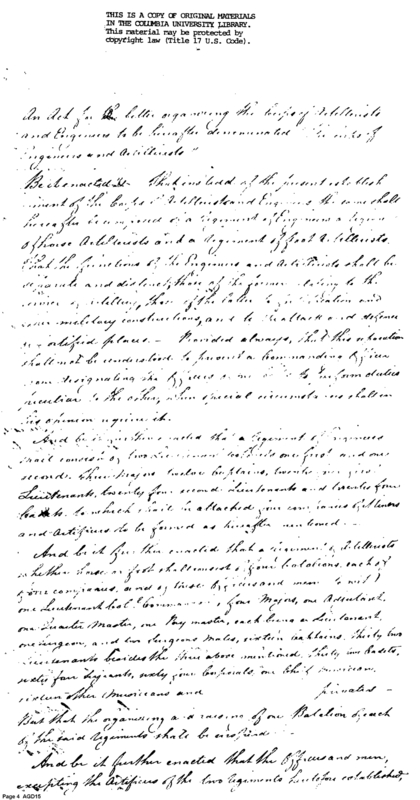 THIS IS A COPY OF ORIGINAL MATERIALS
IN THE COLUMBIA UNIVERSITY LIBRARY.
This material may be protected by
copyright law (Title 17 U.S. Code).
An Act for better organizing the Corps of Artillerists
and Engineers to be hereafter denominated The Corps of
Engineers and Artillerists
Be it enacted That instead of the present establish
ment of the Corps of Artillerists and Engineers the same shall
hereafter be composed of a regiment of Engineers a regiment
of horse Artillerists and a regiment of foot Artillerists.
That the functions of the Engineers and Artillerists shall be
separate and distinct, those of the former relating to the
service of artillery, those of the latter to fortification and
other military constructions, and to the attack and defence
of fortified places. – Provided always, that this separation
shall not be understood to prevent a Commanding Officer
from designating the Officers of one to perform duties
peculiar to the other, when special circumstances shall in
his opinion require it.
And be it further enacted that a regiment of Engineers
shall consist of two one first and one
second. Three Majors twelve Captains, twenty four first
Lieutenants, twenty four second Lieutenants and twenty four
Cadets. to which shall be attached four companies of Miners
and Artificers to be formed as hereafter mentioned –
And be it further enacted that a regiment of Artillerists
whether horse or foot shall consist of four battalions, each of
four companies, and of these Officers and men (to wit)
one Lieutenant Col. Commandant, four Majors, one Adjutant,
one Quarter Master, one Pay master, each being a Lieutenant,
one surgeon, and two Surgeons Mates, sixteen Captains. Thirty two
Lieutenants besides the three above mentioned. Thirty two Cadets,
sixty four Sergeants, sixty four Corporals, one Chief musician,
other Musicians and privates –
But that the organizing and raising of one Batalion of each
of the said regiments shall be
And be it further enacted that the Officers and men,
excepting the Artificers of the two regiments heretofore established,
Page 4 AGD15